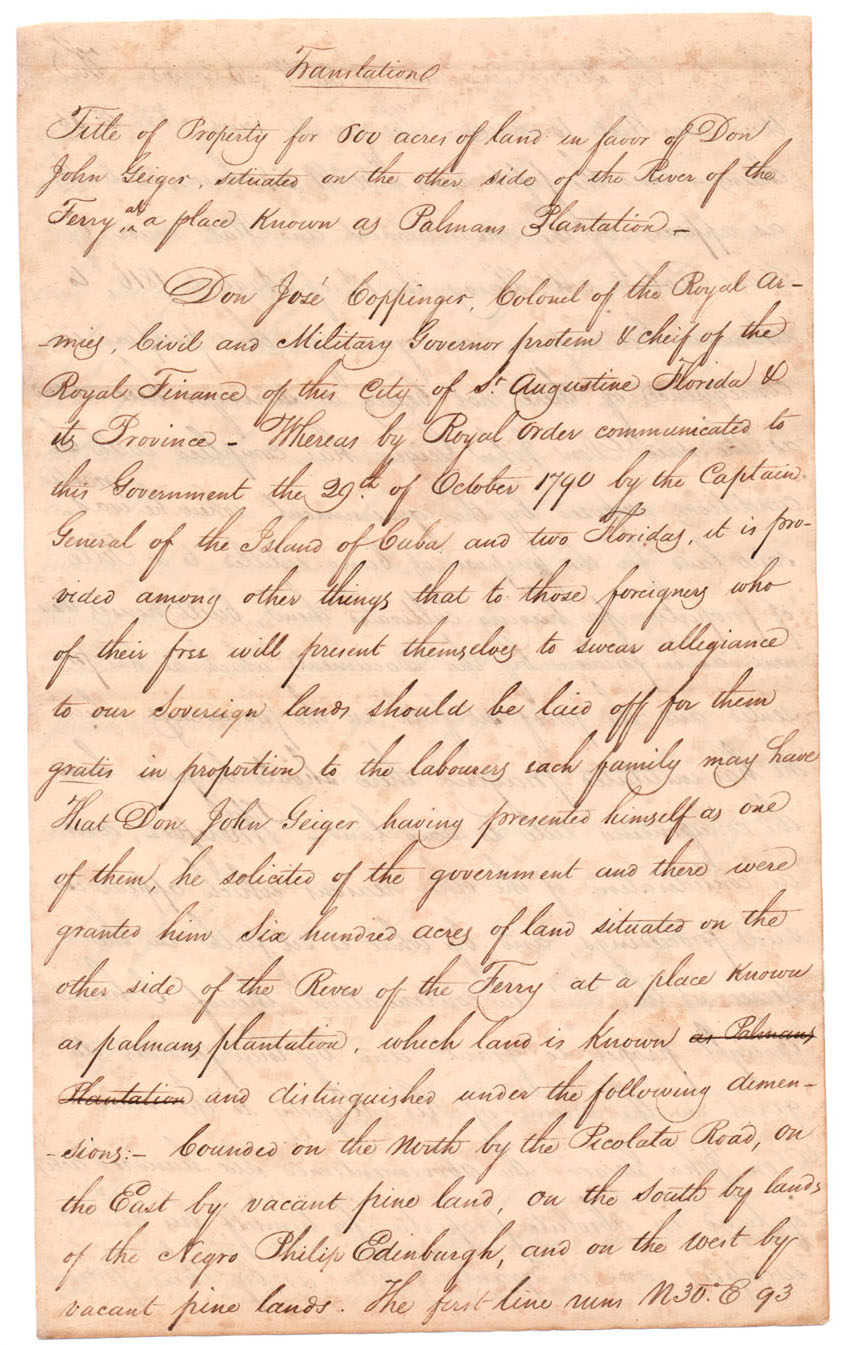 Translation
Title of Property for 600 acres of land in favor of Don
John Geiger, situated on the other side of the River of the
Ferry, at a place Known as Palmans Plantation —
Don José Coppinger, Colonel of the Royal Ar-
-mies, Civil and Military Governor protem & cheif of the
Royal Finance of this City of St. Augustine Florida &
its Province — Whereas by Royal order communicated to
this Government the 29th. of October 1790 by the Captain
General of the Island of Cuba and two Floridas, it is pro-
vided among other things that to those foreigners who
of their free will present themselves to swear allegiance
to our Sovereign lands should be laid off for them
gratis in proportion to the labourers each family may have
That Don John Geiger having presented himself as one
of them, he solicited of the government and there were
granted him Six hundred acres of land situated on the
other side of the River of the Ferry at a place Known
as palmans plantation, which land is Known as Palmans
Plantation and distinguished under the following dimen-
-sions:- bounded on the North by the Picolata Road, on
the East by vacant pine land, on the South by lands
of the Negro Philip Edinburgh, and on the west by
vacant pine lands. The first line runs N 30.° E 93